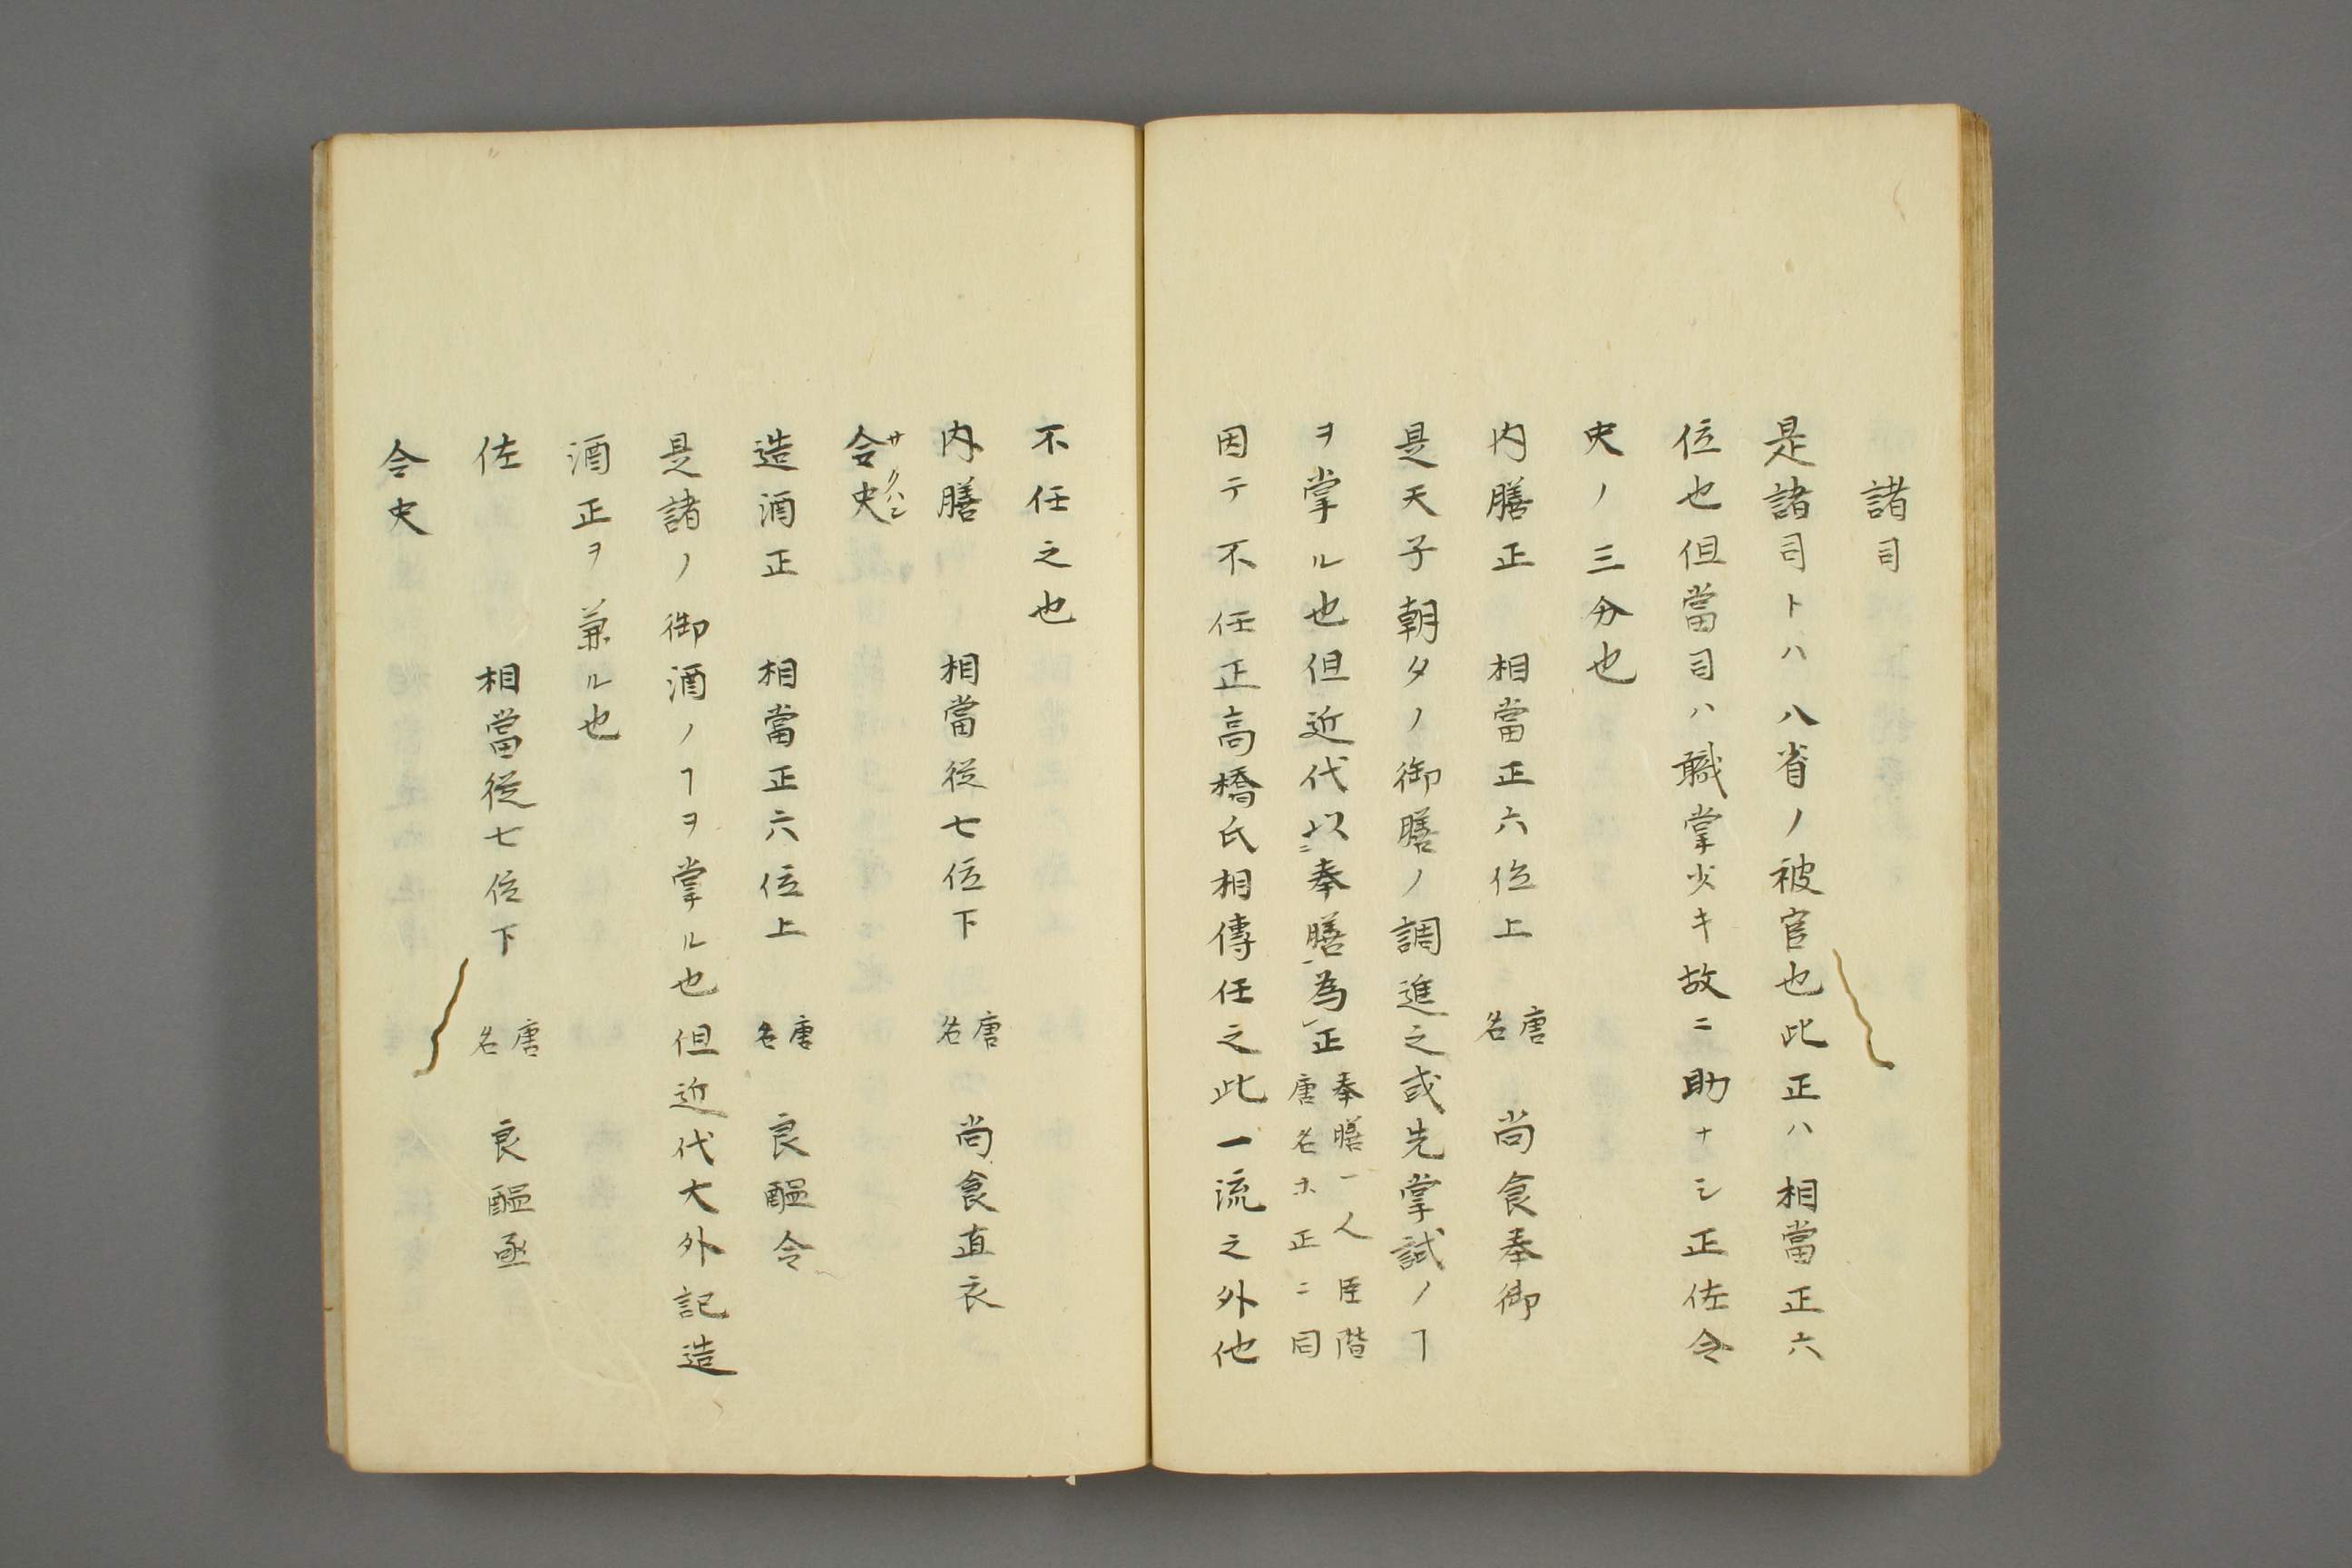 諸司
是諸司トハ八省ノ被官也此正ハ相當正六
位也但當司ハ職掌少キ故ニ助ナシ正佐令
史ノ三分也
内膳正 相當正六位上 唐名 尚食奉御
是天子朝夕ノ御膳ノ調進之或先掌試ノヿ
ヲ掌ル也但近代以ニ奉膳一為レ正 奉膳一人臣階
唐名ホ正ニ同
因テ不任正高橋氏相傳任之此一流之外他
不任之也
内膳 相當従七位下 唐名 尚食直衣
令史 サクハン
造酒正 相當正六位上 唐名 良醞令
是諸ノ御酒ノヿヲ掌ル也但近代大外記造
酒正ヲ兼ル也
佐 相當従七位下 唐名 良醞丞
令史